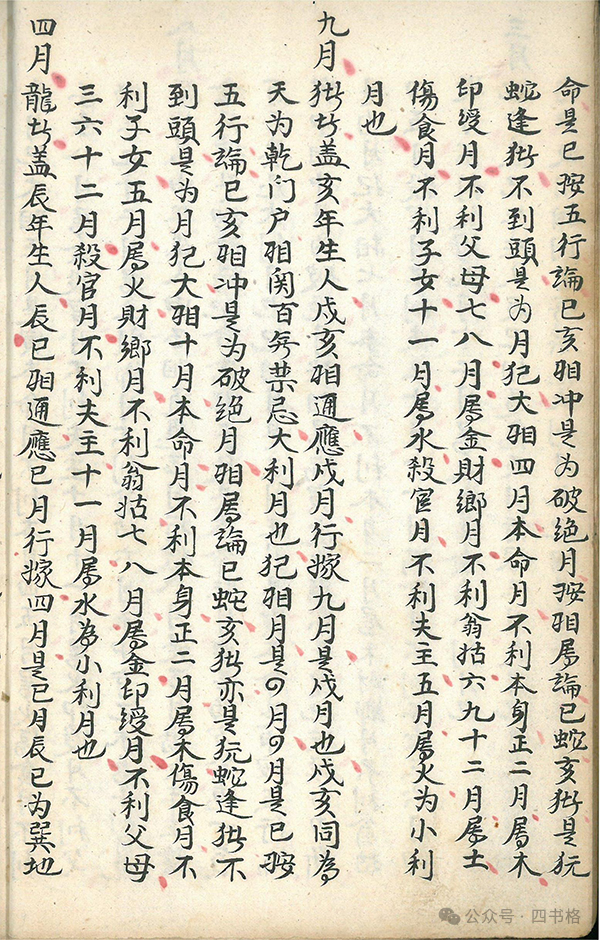 命是巳按五行論巳亥相冲是为破绝月按相属論巳蛇亥猪是犯
蛇逢猪不到頭是为月犯大相四月本命月不利本身正二月属木
印綬月不利父母七八月属金財鄉月不利翁姑六九十二月属土
傷食月不利子女十一月属水殺官月不利夫主五月属火为小利
月也
九月 猪盖亥年生人戌亥相通應戌月行嫁九月是戌月也戌亥同為
天为乾门户相関百年禁忌大利月也犯相月是四月四月是巳按
五行論巳亥相冲是为破绝月相属論巳蛇亥猪亦是犯蛇逢猪不
到頭是为月犯大相十月本命月不利本身正二月属木傷食月不
利子女五月属火財鄉月不利翁姑七八月属金印綬月不利父母
三六十二月殺官月不利夫主十一月属水為小利月也
四月 龍盖辰年生人辰巳相通應巳月行嫁四月是巳月辰巳为巽地
公众号·四书格